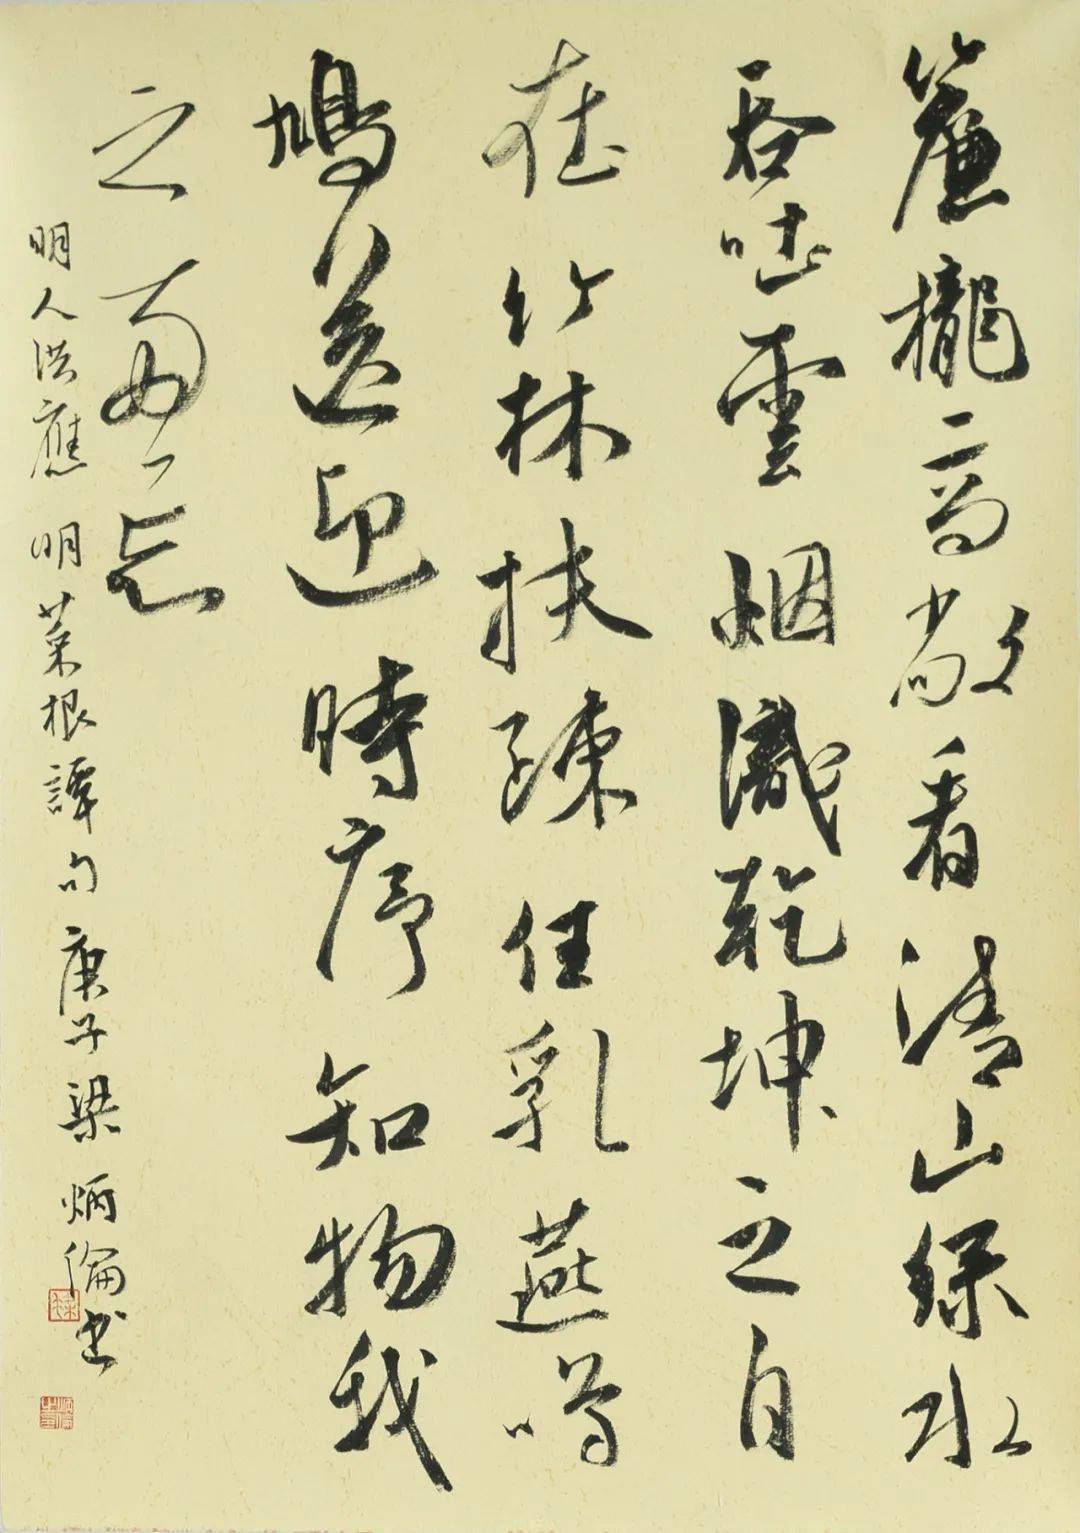 簾櫳高敞看清山綠水
吞吐雲烟識乾坤之自
在竹林扶疎任乳燕鳴
鳩送迎時序知物我
之兩忘
明人洪應明菜根譚句庚子梁炳倫书